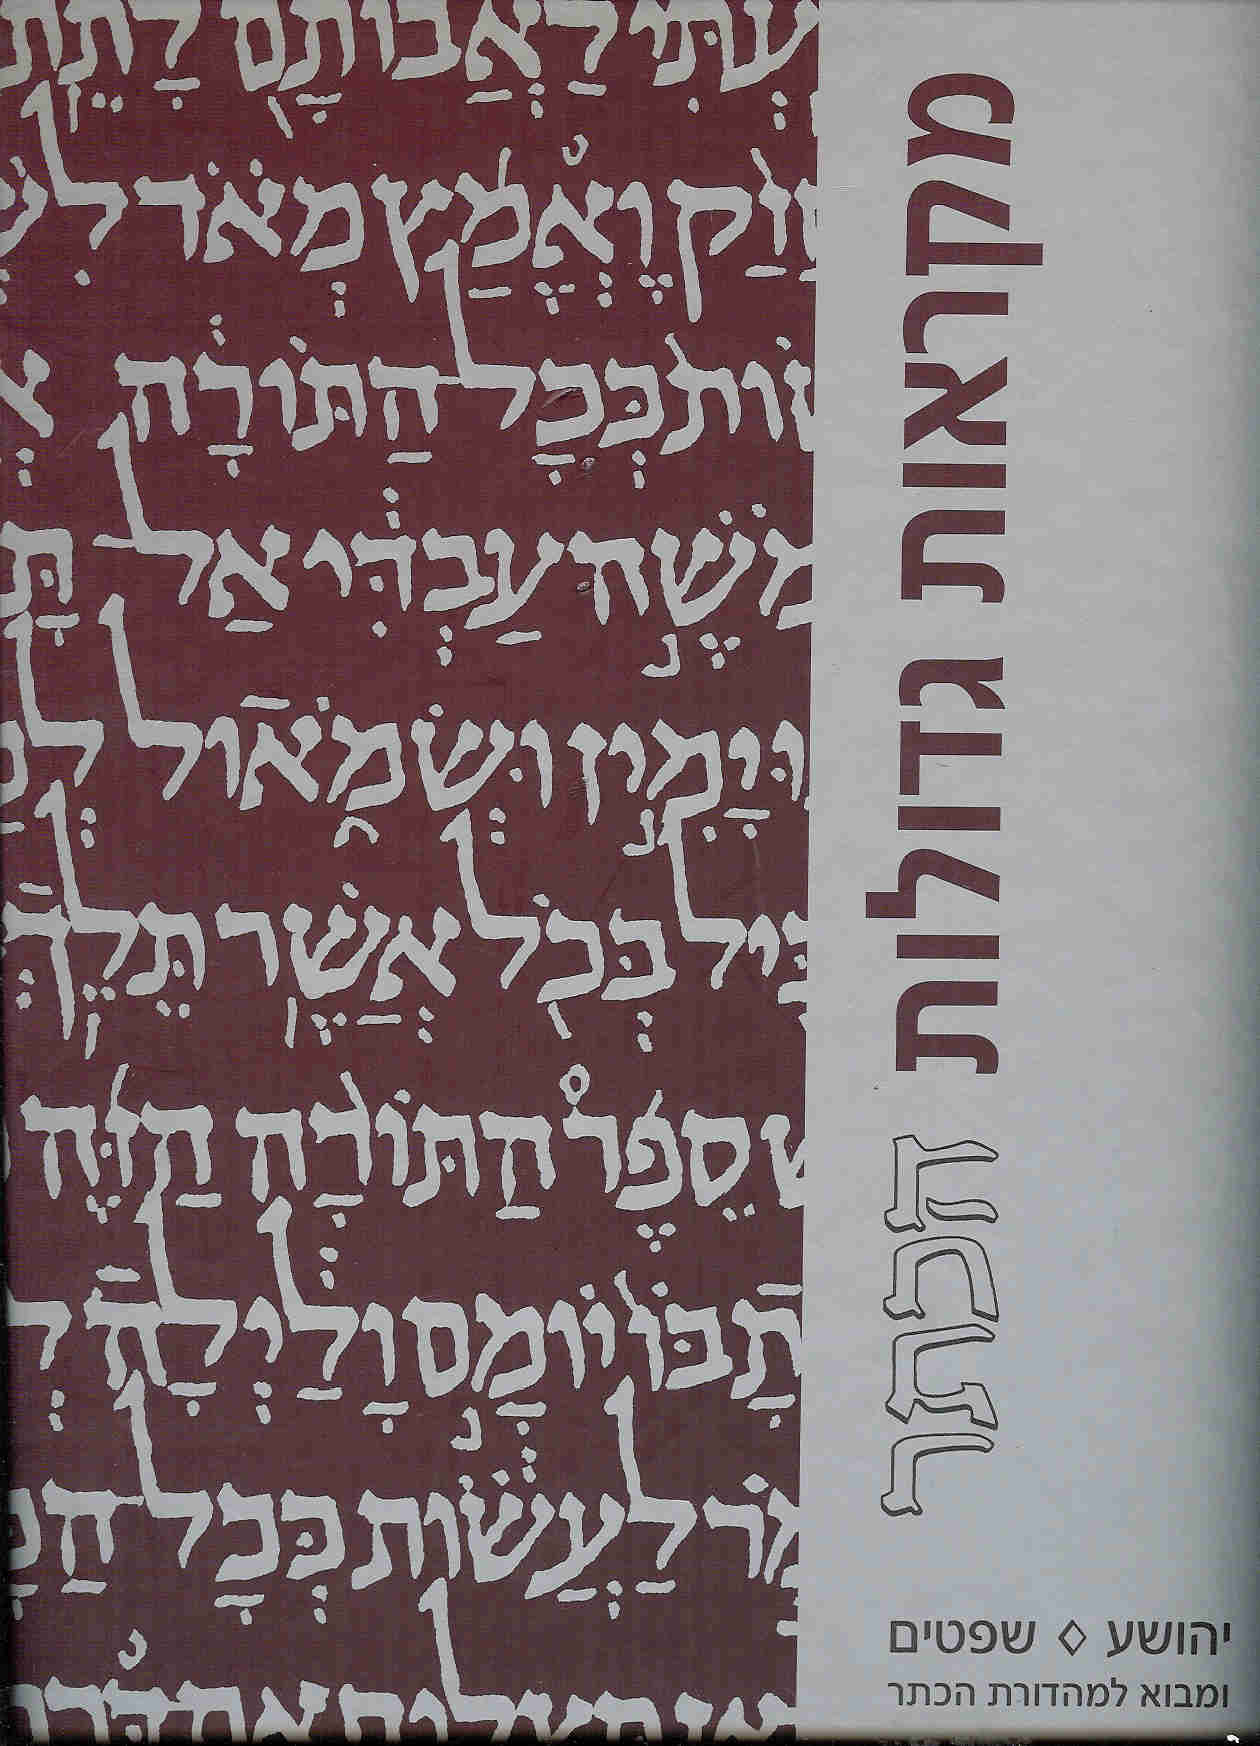 מקראות גדולות הכתר
יהושע ◊ שפטים
ומבוא למהדורת הכתר
עְתִּי לַאֲבוֹתָם לָתֵת
זַק וֶאֱמַץ מְאֹד לִשְׁ
וֹת כְּכָל הַתּוֹרָה אֲ
מֹשֶׁה עַבְדִּי אַל תָּ
וּ יָמִין וּשְׂמֹאול לְמַ
כִּיל בְּכֹל אֲשֶׁר תֵּלֵךְ
שׁ סֵפֶר הַתּוֹרָה הַזֶּה
תָ בּוֹ יוֹמָם וָלַיְלָה לְ
מֹר לַעֲשׂוֹת כְּכָל הַכָּ